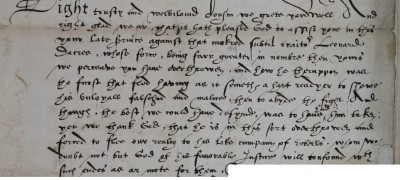 Right trusty and welbiloved Cousin we grete you well. And
right glad we are that it hath pleased God to assist you in this
your late service against that wicked subtil traitor Leonard
Dacres, whose force being farr greater in nombre then yours
we perceave you have overthrowen, and how he theruppon was
the first that fled having as it semeth a hart readyer to shewe
his unloyall falsehod and malice, then to abyde the fight. And
though the best we could have desyred, was to have him taken
yet we thank God, that he is in this sort overthrowen and
forced to flee our realme to his like company of rebells, whom we
doubt not but God of his favorable Justice will confound with
such endes as ar mete for them